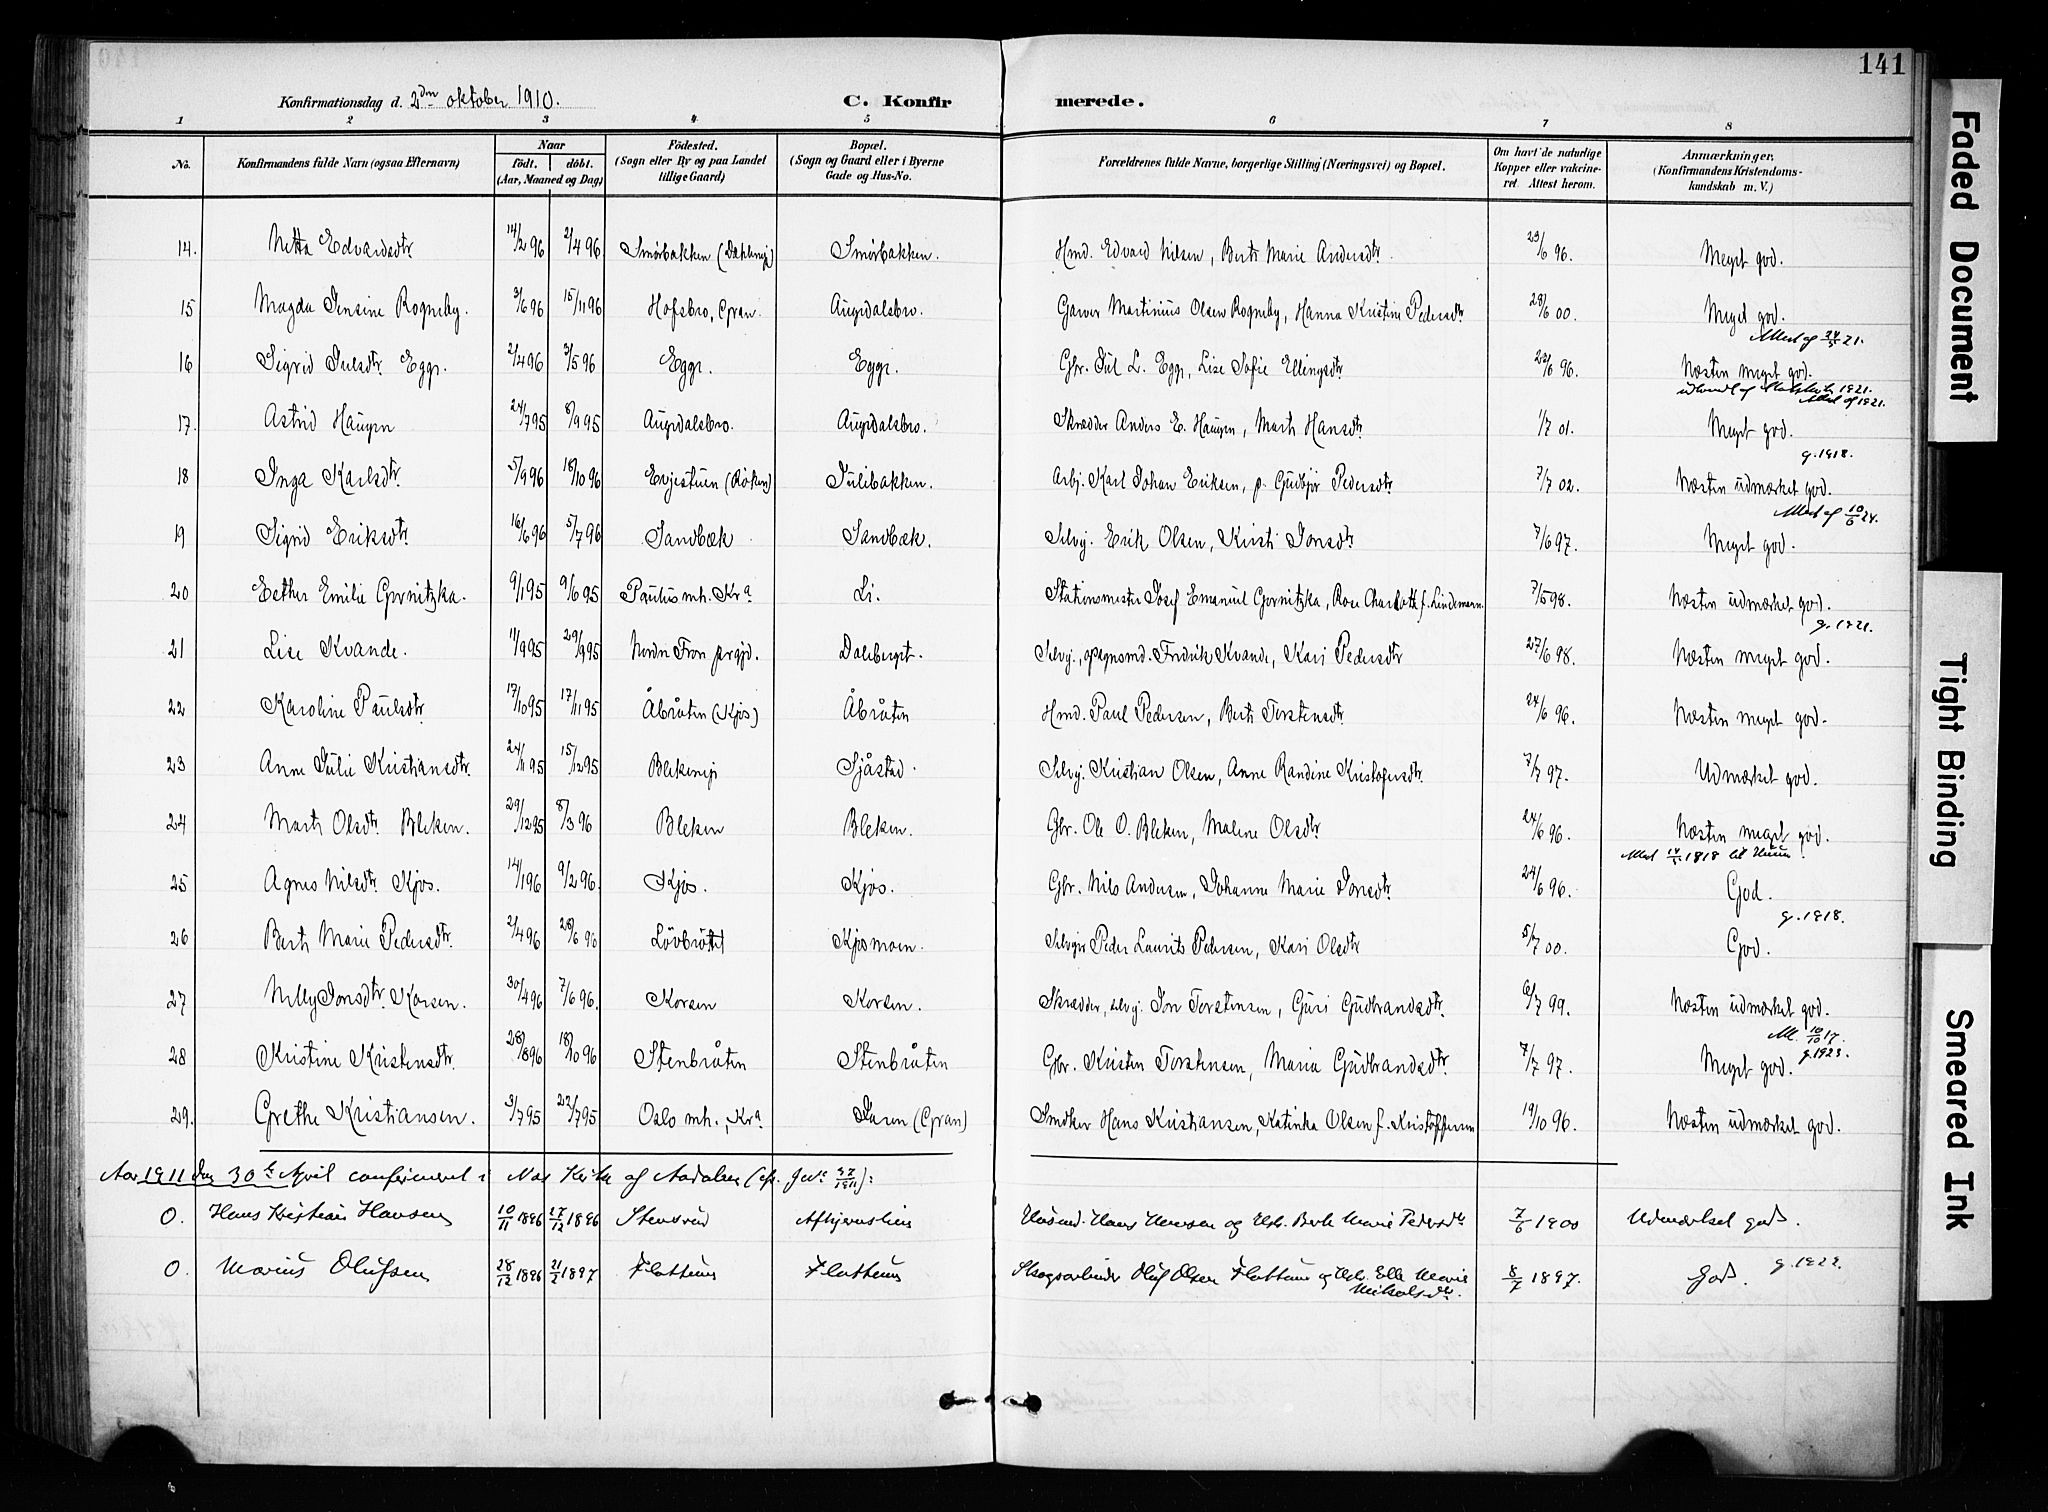 141
Konfirmationsdag d. 2den oktober 1910. C. Konfirmerede.
1 2 3 4 5 6 7 8
No. Konfirmandens fulde Navn (ogsaa Efternavn) Naar født. døbt. (Aar, Maaned og Dag) Fødested. (Sogn eller By og paa Landet tillige Gaard) Bopæl. (Sogn og Gaard eller i Byerne Gade og Hus-No. Forældrenes fulde Navne, borgerlige Stilling (Næringsvei) og Bopæl. Om havt de naturlige Kopper eller vakcineret. Attest herom. Anmærkninger. (Konfirmandens Kristendomskundskab m. V.)
14. Netta Edvardsdtr 14/2 96 2/4 96 Smørbakken Smørbakken. Hmd. Edvard Nilsen, Berte Marie Andersdtr. 23/6 96. Meget god.
15 Magda Jensine Rogneby. 3/6 96 15/11 96 Hofsbro, Gran. Augedalsbro. Garver Martinius Olsen Rogneby, Hanna Kristine Pedersdtr 28/6 00. Meget god.
Attest af 24/5 21.
16 Sigrid Julsdtr. Egge. 2/4 96 3/5 96 Egge. Egge. Gbr. Jul L. Egge, Lise Sofie Ellingsdtr 23/6 96. Næsten meget god.
1921.
Attest af 1921.
17. Astrid Haugen 24/7 95 8/9 95 Augedalsbro. Augedalsbro. Skrædder Anders E. Haugen, Marte Hansdtr. 1/7 01. Meget god.
g. 1918.
18 Inga Karlsdtr. 5/9 96 18/10 96 Evjestuen (Røken) Julibakken. Arbj. Karl Johan Eriksen, p. Gudbjør Pedersdtr 7/7 02. Næsten udmærket god.
Attest af 10/6 24.
19 Sigrid Eriksdtr. 16/6 96 5/7 96 Sandbæk Sandbæk. Selvej. Erik Olsen, Kirsti Jonsdtr 7/6 97. Meget god.
20 Esther Emilie Gornitzka. 9/1 95 9/6 95 Paulus mh. Kra. Li. Stationsmester Josef Emanuel Gornitzka, Rosa Charlotte f. Lindemann. 7/5 98. Næsten udmærket god.
g. 1921.
21 Lise Kvande. 11/9 95 29/9 95 Nordre Fron prgjd. Daleberget. Selvej., opsynsmd. Fredrik Kvande, Kari Pedersdtr 27/6 98. Næsten meget god.
22 Karoline Paulsdtr. 17/10 95 17/11 95 Åbråten (Kjos) Åbråten Hmd. Paul Pedersen, Berte Torstensdtr. 24/6 96. Næsten meget god.
23 Anne Julie Kristiansdtr. 24/11 95 15/12 95 Blekeneje Sjåstad. Selvej. Kristian Olsen, Anne Randine Kristofersdtr. 7/7 97. Udmærket god.
24 Marte Olsdtr. Bleken. 29/12 95 8/3 96 Bleken Bleken. Gbr. Ole O. Bleken, Malene Olsdtr 24/6 96. Næsten meget god.
Attest 14/5 1918 til
25 Agnes Nilsdtr. Kjos. 14/1 96 9/2 96. Kjos. Kjos. Gbr. Nils Andersen, Johanne Marie Jonsdtr. 24/6 96. God.
g. 1918.
26 Berte Marie Pedersdtr. 2/4 96 28/6 96 Løvbråtet Kjosmoen. Selvejer Peder Laurits Pedersen, Kari Olsdtr 5/7 00. God.
27 Nelly Jonsdtr. Korsen. 30/4 96 7/6 96. Korsen Korsen. Skrædder, selvej. Jon Torstensen, Guri Gudbrandsdtr. 6/7 99. Næsten udmærket god.
Att. 10/10 17.
28 Kristine Kristensdtr. 28/8 96 18/10 96 Stenbråten Stenbråten Gbr. Kristen Torstensen, Maria Gudbrandsdtr. 7/7 97. Meget god.
g. 1923.
29. Grethe Kristiansen. 3/7 95 22/7 95 Oslo mh., Kra. Jaren (Gran) Smdker Hans Kristiansen, Katinka Olsen f. Kristoffersen 19/10 96. Næsten udmærket god.
Aar 1911 den 30te April confirmeret i Nes Kirke af Aadalen (cfr. Jno. 37/1911):
0. Hans Kristian Hansen 10/11 1896 27/12 1896 Stensrud Husmd. Hans Hansen og Hst. Berte Marie Pedersdtr 7/6 1900 Udmærket god.
0. Marius Olufsen 28/12 1896 21/2 1897 Flatterud Flatterud Skogsarbeider Oluf Olsen Flatterud og Hst. Elle Marie Mikalsdtr. 8/7 1897. God. g. 1922.
Faded Document
Tight Binding
Smeared Ink